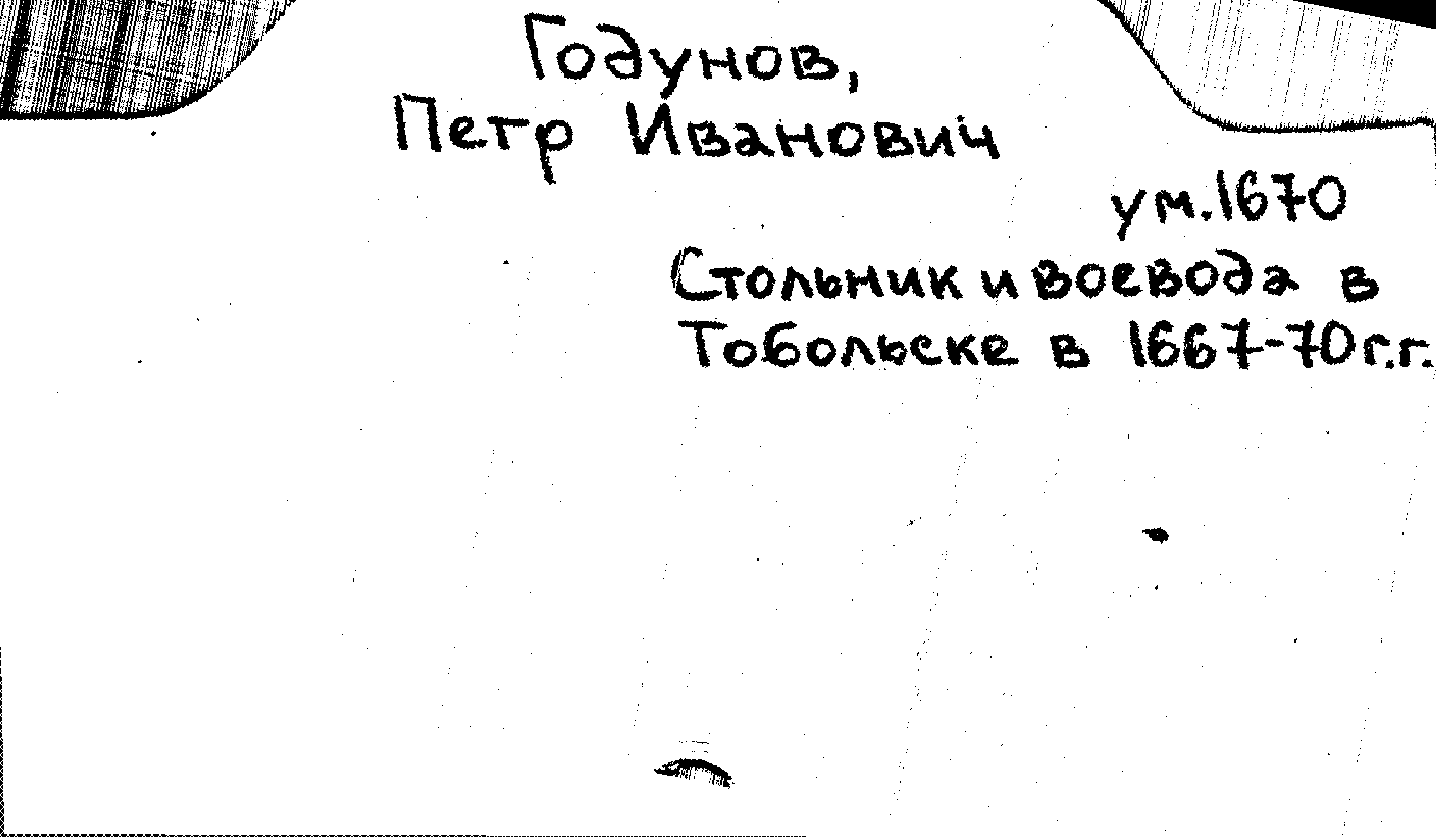 Годунов,
Петр Иванович
ум.1670
Стольник и воевода в
Тобольске в 1667-70г.г.